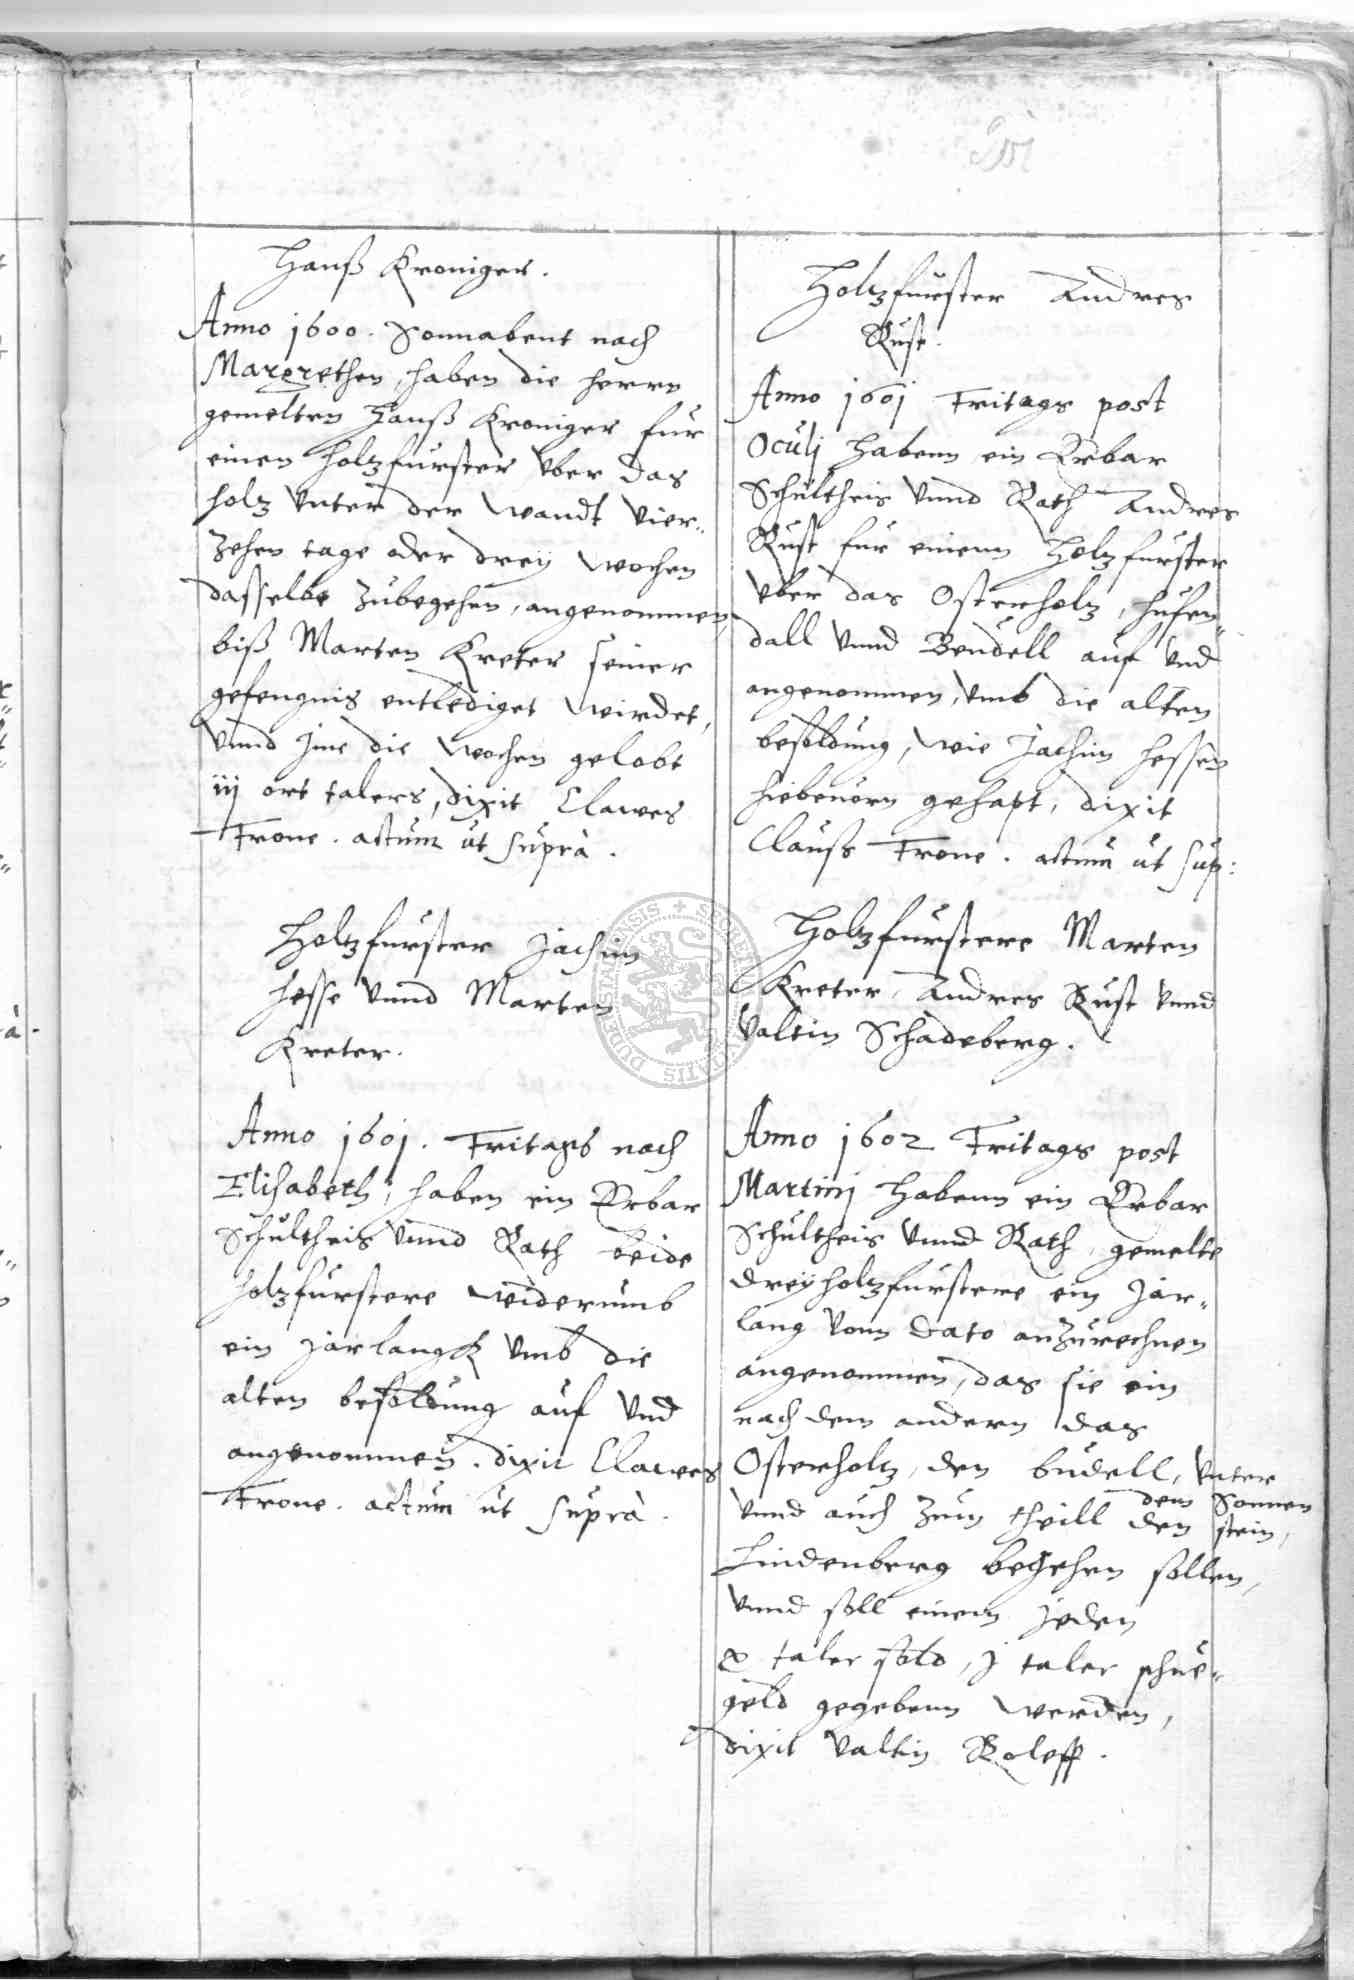 Hanß Kroniger.
Anno 1600. Sonnabent nach
Margrethen, haben die herrn
gemelten Hanß Kroniger fur
einen holtzfurster vber das
holz vnter der wandt vier„
zehen tage oder dreÿ wochen
dasselbe zubegehen, angenommen,
biß Marten Kreter seiner
gefengnis entlediget wirdet,
vnnd jme die wochen gelobt
iij ort talers, dixit Clawes
Trone. actum ut suprà.
Holtzfurster Jachim
Hesse vnnd Marten
Kreter.
Anno 1601. Fritags nach
Elisabeth, haben ein Erbar
Schultheis vnnd Rath beide
holtzfurstere widerumb
ein jarlangk vmb die
alten besoldung auf vnd
angenommen. dixit Clawes
Trone. actum ut suprà.
Holtzfurster Andres
Rust.
Anno 1601 Fritags post
Oculj habenn ein Erbar
Schultheis vnnd Rath Andres
Rust fur einenn Holtzfurster
vber das Osterholtz, hufen„
dall vnnd Bendell auf vnd
angenommen, vmb die alten
besoldung, wie Jachim Hessen
hiebeuorn gehapt, dixit
Clauss Trone. actum ut sup:
Holtzfurstere Marten
Kreter, Andres Rust vnnd
Valtin Schadeberg.
Anno 1602 Fritags post
Martinj habenn ein Erbar
Schultheis vnnd Rath, gemelte
dreÿ holtzfurstere ein jar„
lang vonn dato anzurechnen
angenommen, das sie ein
nach dem andern das
Osterholtz, den budell, vnter
dem Sonnen
vnnd auch zum theill den stein,
Lindenberg begehen sollen,
vnnd soll einem jeden
x taler sold, j taler schue„
geld gegebenn werden,
dixit Valtin Roleff.
SECRET CIVITATIS DUDERSTADENSIS